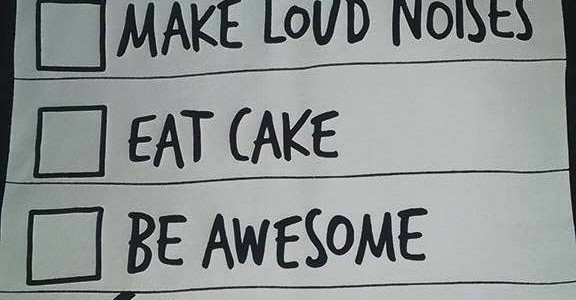 MAKE LOUD NOISES
EAT CAKE
BE AWESOME